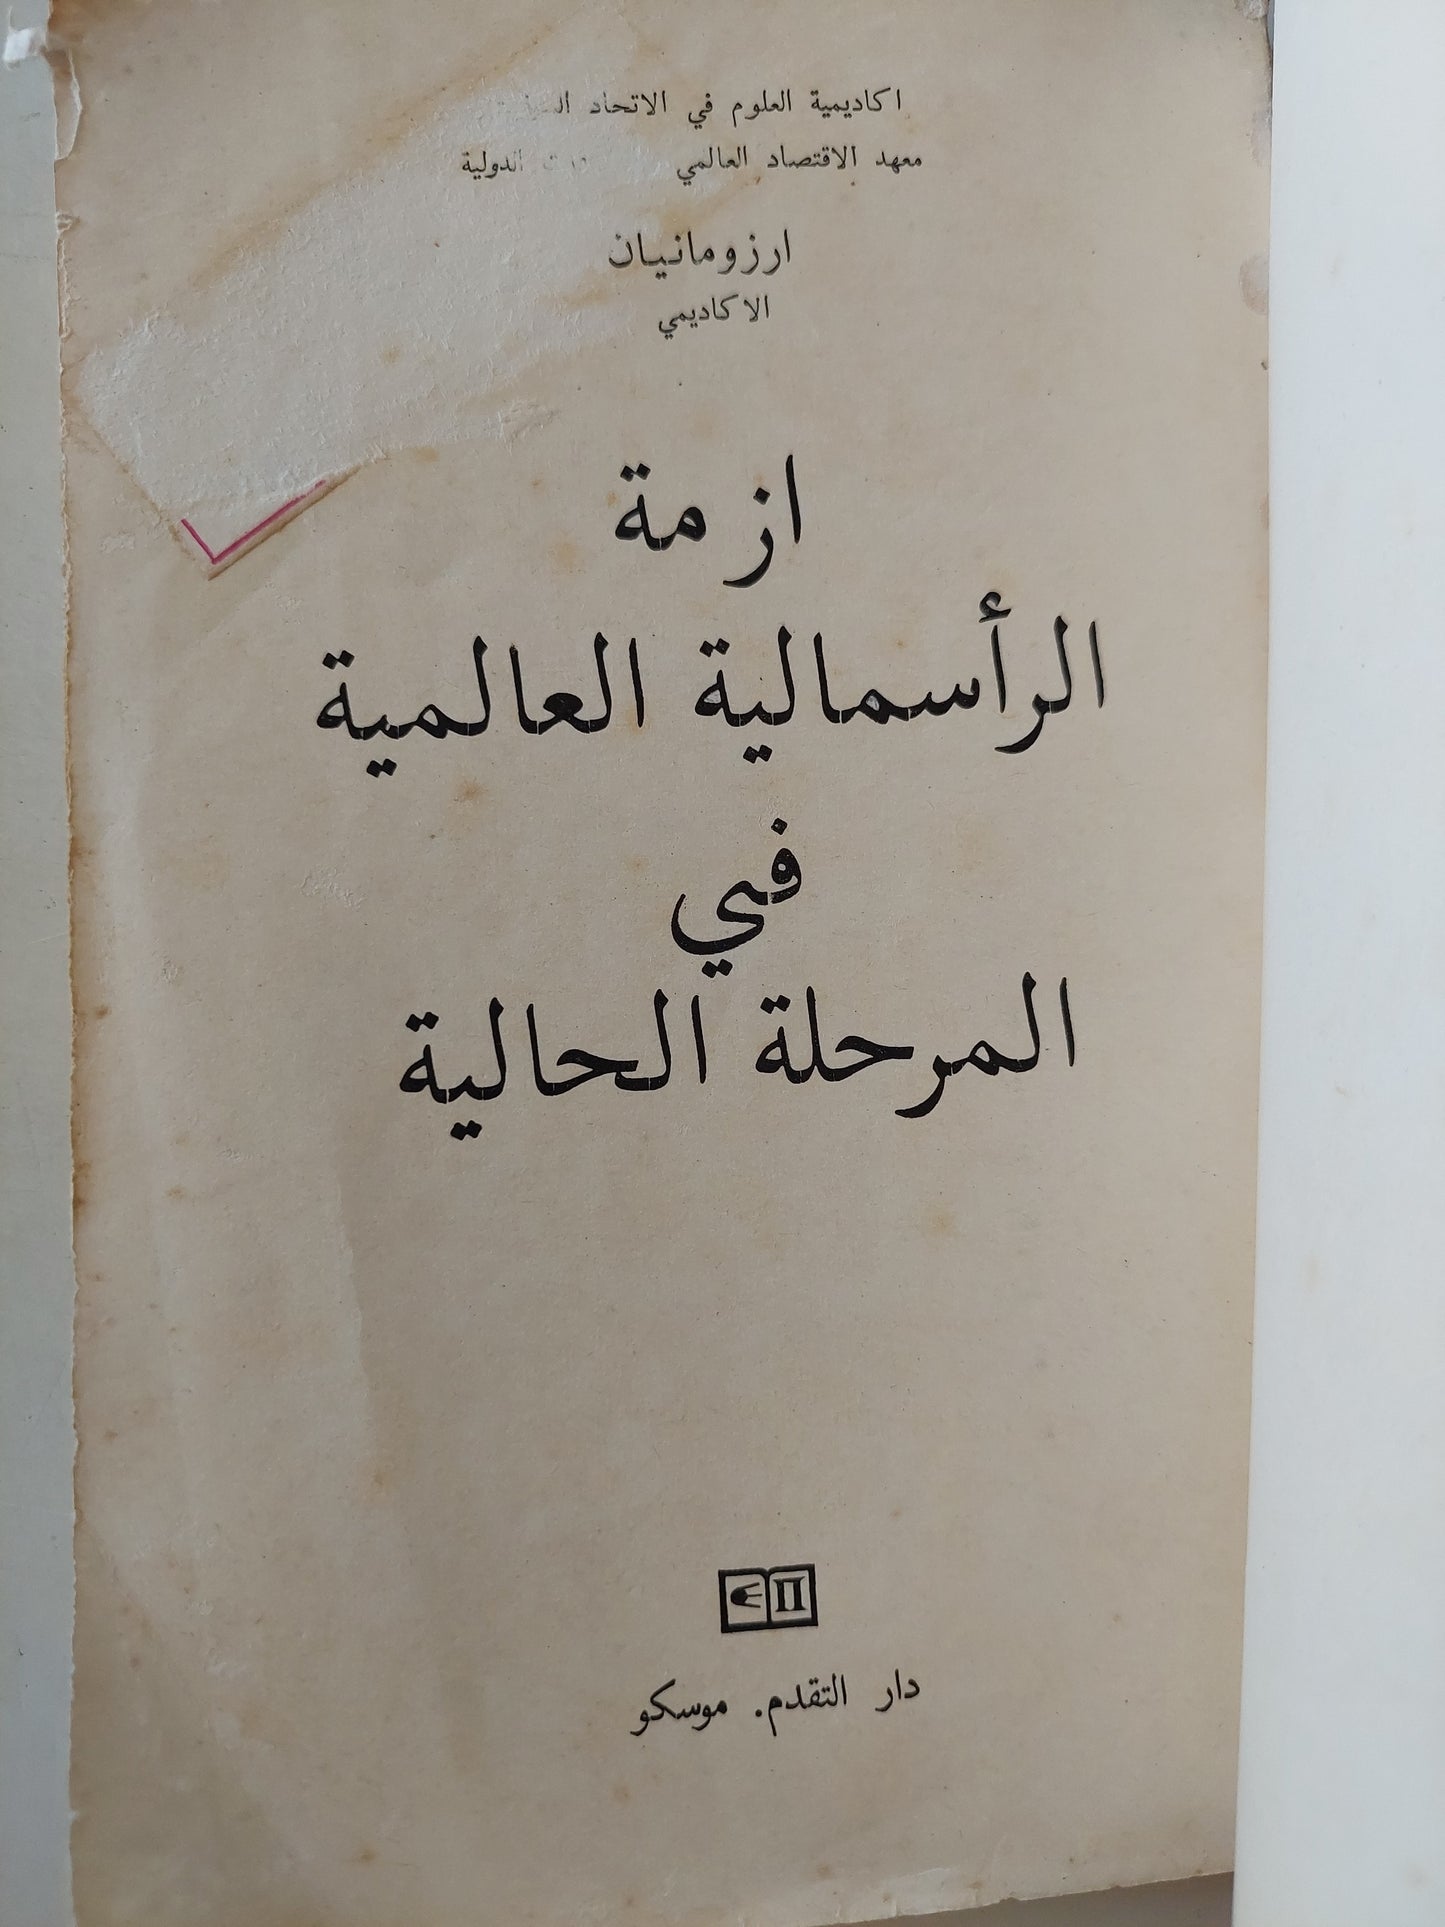 اكاديمية العلوم في الاتحاد
معهد الاقتصاد العالمي الدولية
ارزومانيان
الاكاديمي
ازمة
الرأسمالية العالمية
في
المرحلة الحالية
П
دار التقدم. موسكو